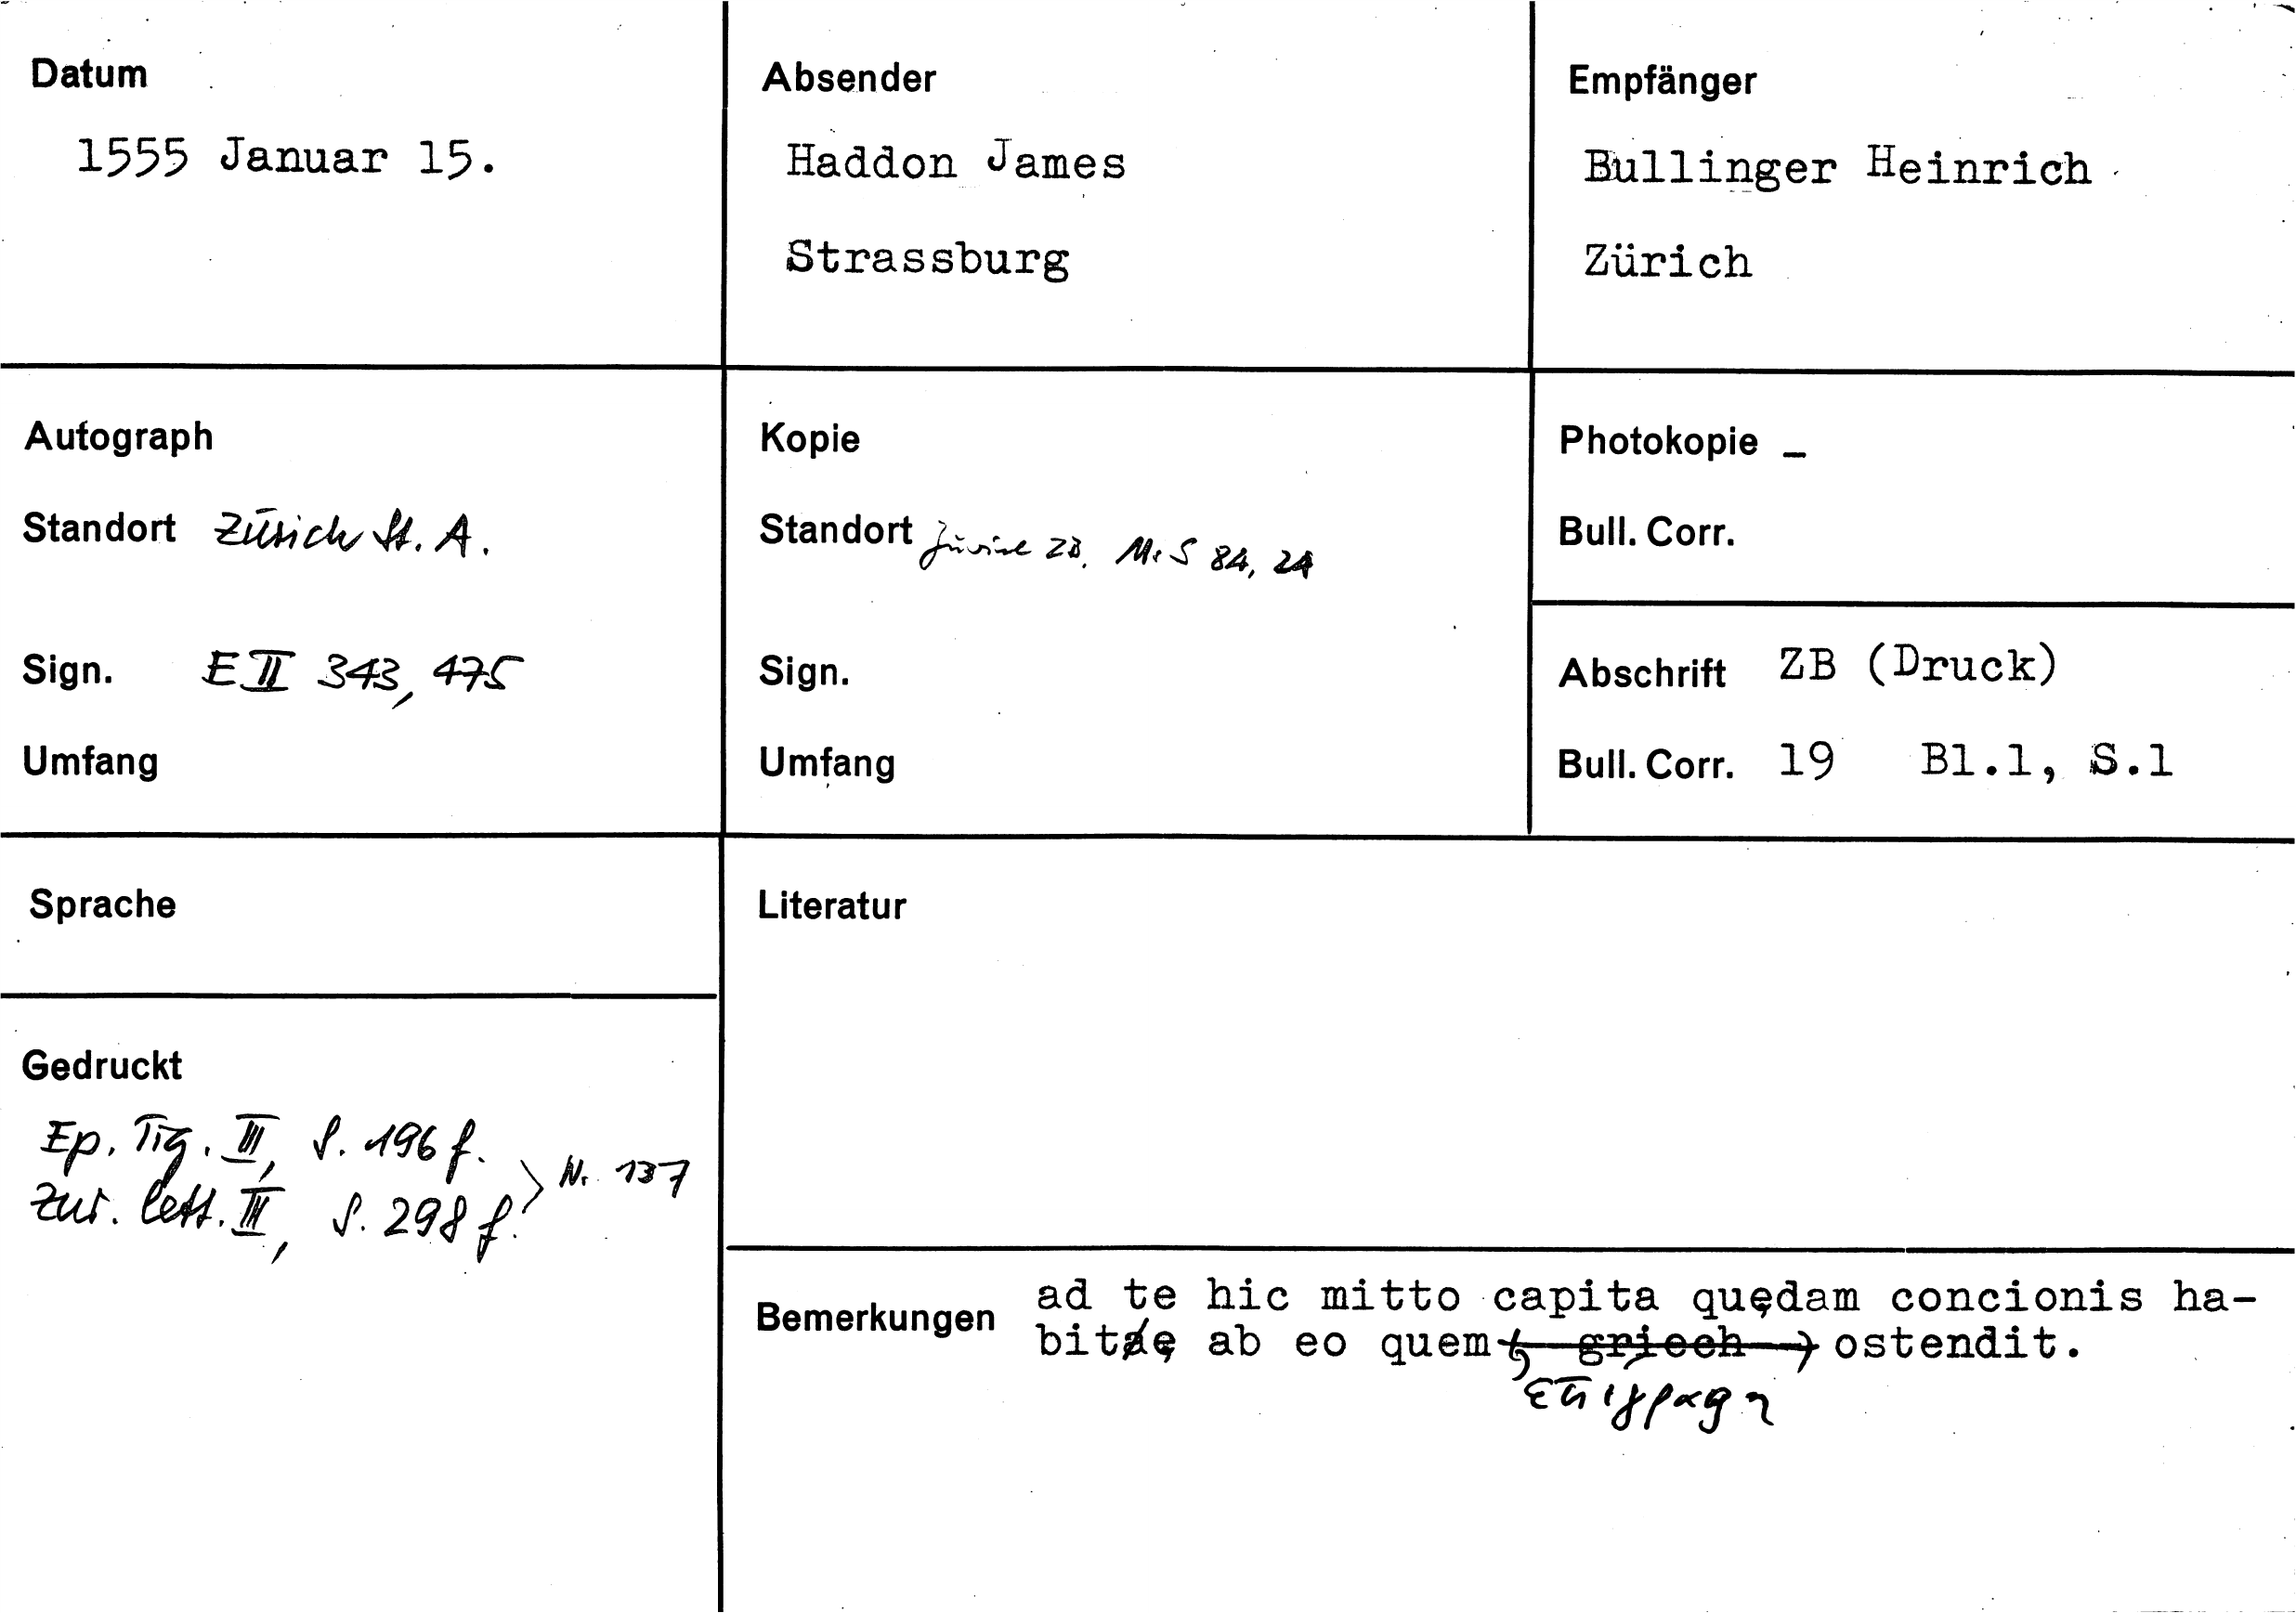 Datum
1555 Januar 15.
Absender
Haddon James
Strassburg
Empfänger
Bullinger Heinrich
Zürich
Autograph
Standort Zürich St. A.
Sign. E II 343, 475
Umfang
Kopie
Standort ZB. Ms S 84, 24
Sign.
Umfang
Photokopie –
Bull. Corr.
Abschrift ZB (Druck)
Bull. Corr. 19 Bl.1, S.1
Sprache
Gedruckt
Ep. Tig. III, S. 196 f.
Zur. lett. III, S. 298 f. > Nr. 137
Literatur
Bemerkungen
ad te hic mitto capita quędam concionis ha-
bitę ab eo quem, griech, ostendit.
επιγραφη